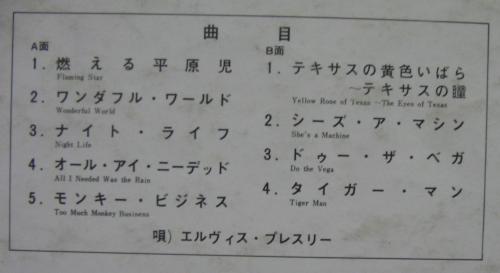 曲目
A面
1. 燃える平原児
Flaming Star
2. ワンダフル・ワールド
Wonderful World
3. ナイト・ライフ
Night Life
4. オール・アイ・ニーデッド
All I Needed Was the Rain
5. モンキー・ビジネス
Too Much Monkey Business
B面
1. テキサスの黄色いばら
〜テキサスの瞳
Yellow Rose of Texas 〜The Eyes of Texas
2. シーズ・ア・マシン
She's a Machine
3. ドゥー・ザ・ベガ
Do the Vega
4. タイガー・マン
Tiger Man
唄) エルヴィス・プレスリー